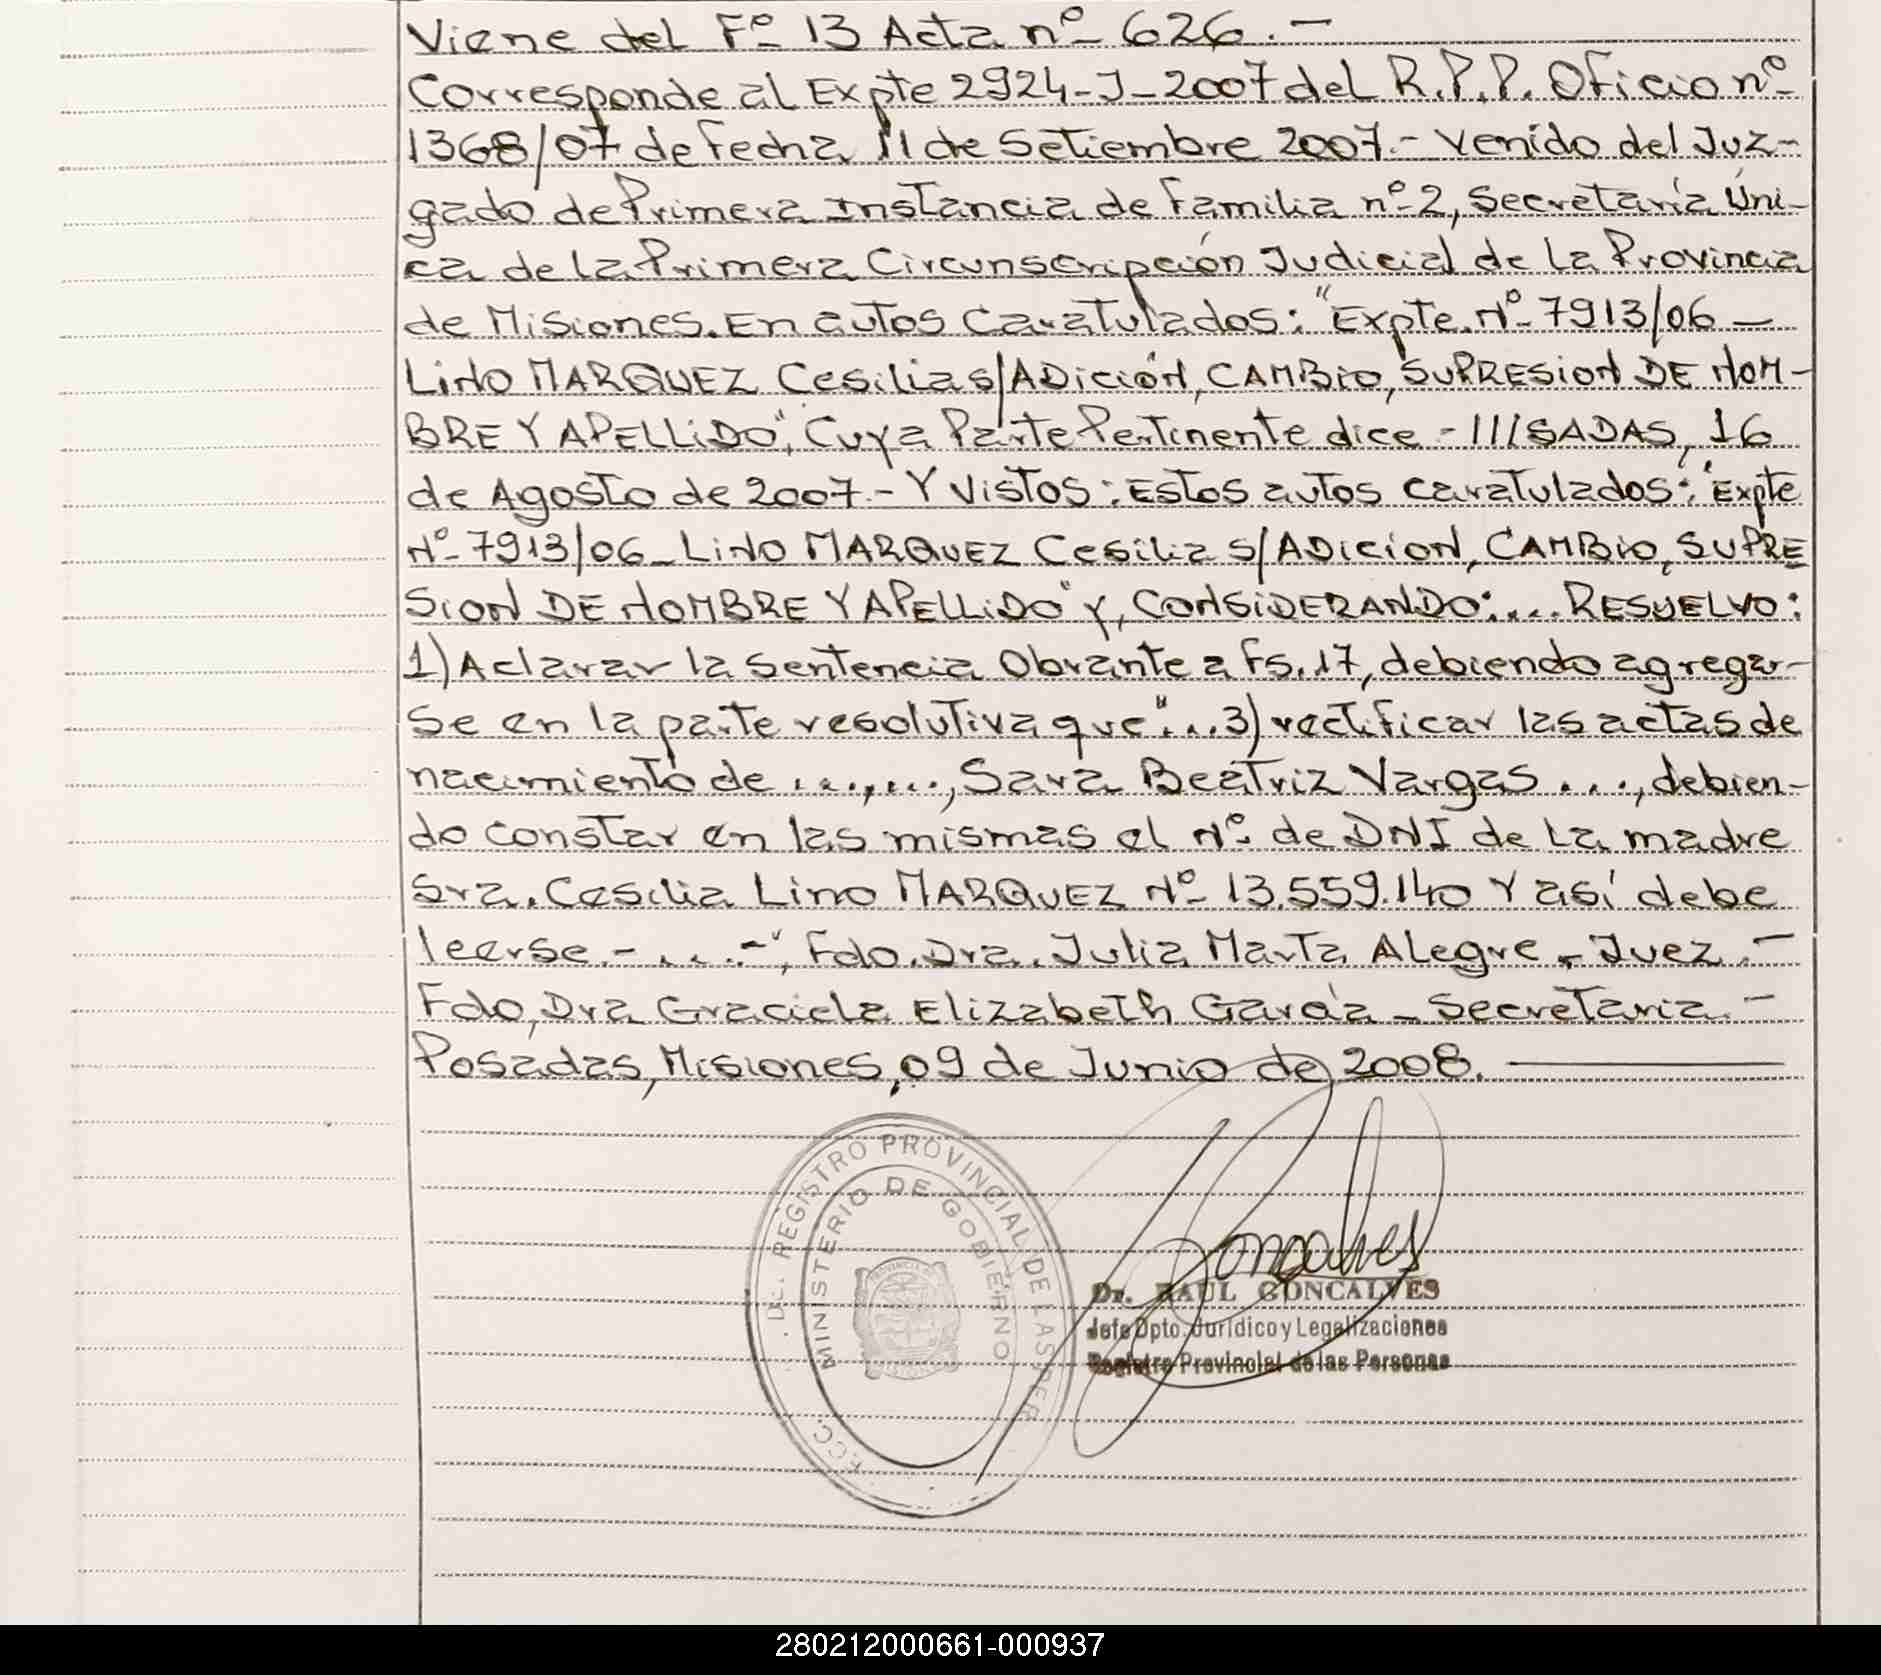 Viene del Fº 13 Acta nº 626. –
Corresponde al Expte 2924-J-2007 del R.P.P. Oficio nº
1368/07 de fecha 11 de Setiembre 2007.- Venido del Juz-
gado de Primera Instancia de Familia nº 2, Secretaría Úni-
ca de la Primera Circunscripción Judicial de la Provincia
de Misiones. En autos Caratulados: "Expte. Nº 7913/06 –
Lino MARQUEZ Cesilia s/ADición, CAMBio, SUPRESion DE NOM-
BRE Y APELLiDO", Cuya Parte Pertinente dice - ///SADAS, 16
de Agosto de 2007.- Y Vistos: Estos autos caratulados: "Expte
Nº 7913/06 – Lino MARQUEZ Cesilia s/ADicion, CAMBio, SUPRE
Sion DE NOMBRE Y APELLiDO" y, CONSiDERANDO:.... RESUELVO:
1) Aclarar la Sentencia Obrante a fs. 17, debiendo agregar-
se en la parte resolutiva que "...3) rectificar las actas de
nacimiento de ...,..., Sara Beatriz Vargas ..., debien-
do constar en las mismas el Nº de DNI de la madre
Sra. Cesilia Lino MARQUEZ Nº 13.559.140 Y así debe
leerse.- ....-", Fdo. Dra. Julia Marta Alegre – Juez. –
Fdo, Dra Graciela Elizabeth García – Secretaria. –
Posadas, Misiones, 09 de Junio de 2008.
DEL REGISTRO PROVINCIAL DE LAS PER
MINISTERIO DE GOBIERNO
Goncalves
Dr. RAUL GONCALVES
Jefe Dpto. Jurídico y Legalizaciones
Registro Provincial de las Personas
280212000661-000937